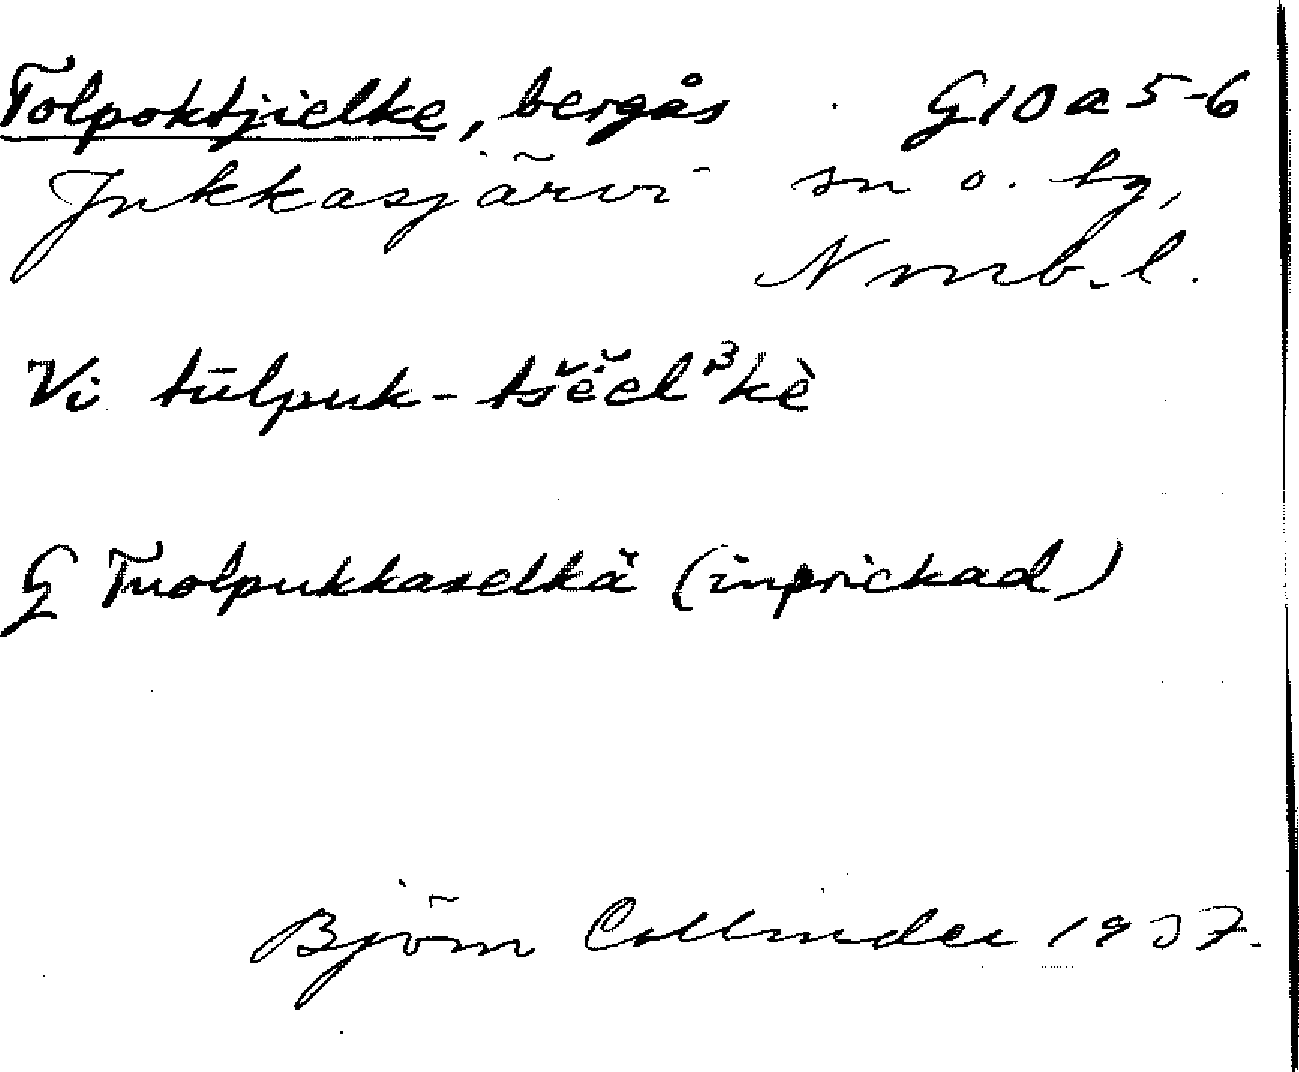 Tolpoktjielke, bergås G10a5-6
Jukkasjärvi sn o. tg,
Nrrb.l.
Vi tūlpuk-tšĕĕlᵌkè
G Tuolpukkaselkä (inprickad)
Björn Collinder 1937.